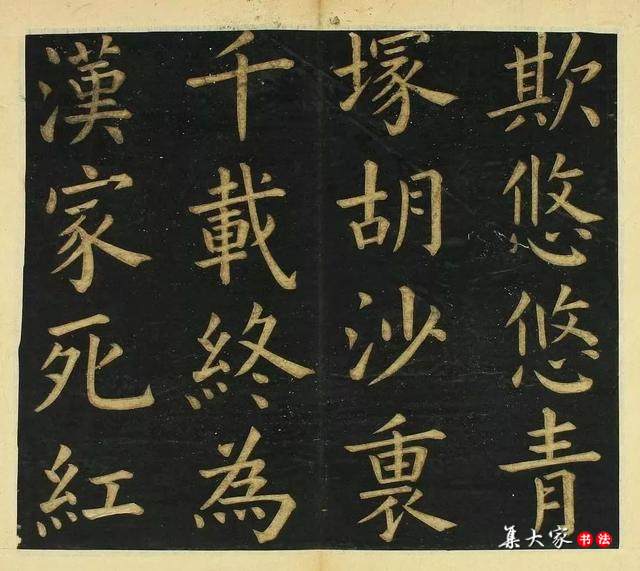 欺悠悠青
塚胡沙裏
千載終為
漢家死紅
集大家书法